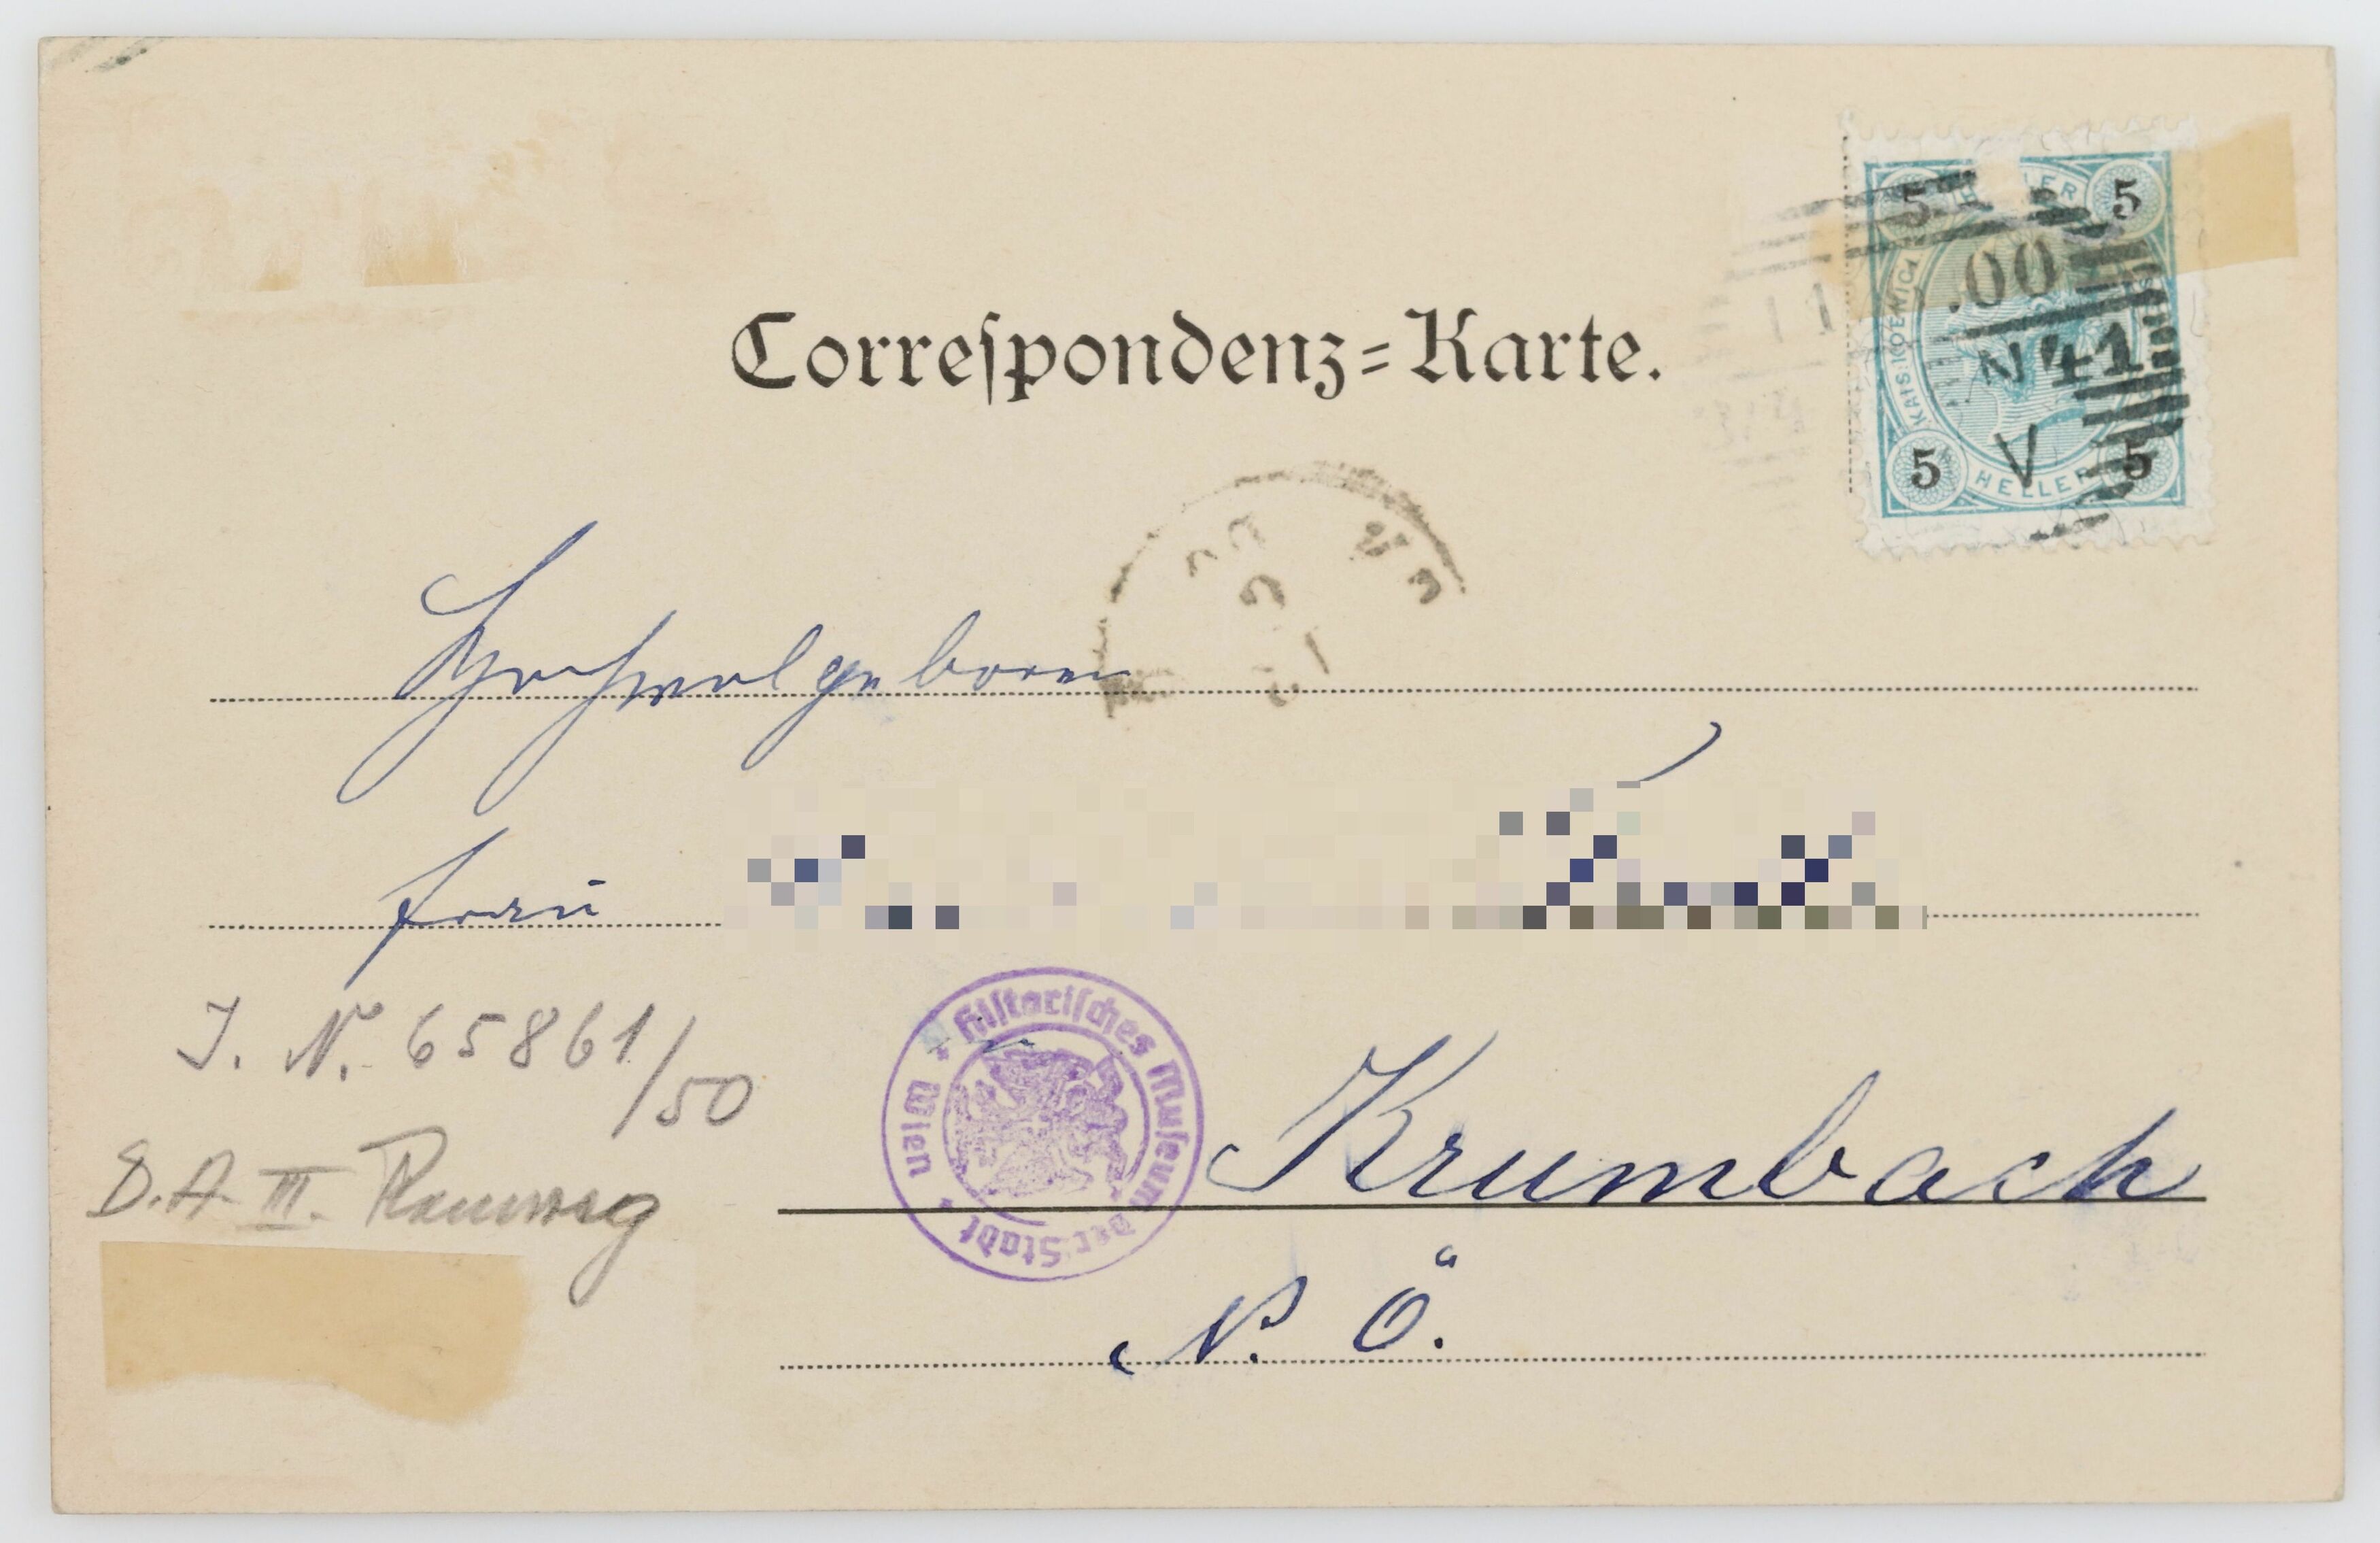 Correspondenz=Karte.
5 HELLER 5
KAIS. KOENIGL
.00
N 41
V
5 HELLER 5
Hochwolgeboren
Frau
J. N. 65861/50
* Historisches Museum der Stadt * Wien
Krumbach
III. Rennweg
N. Ö.